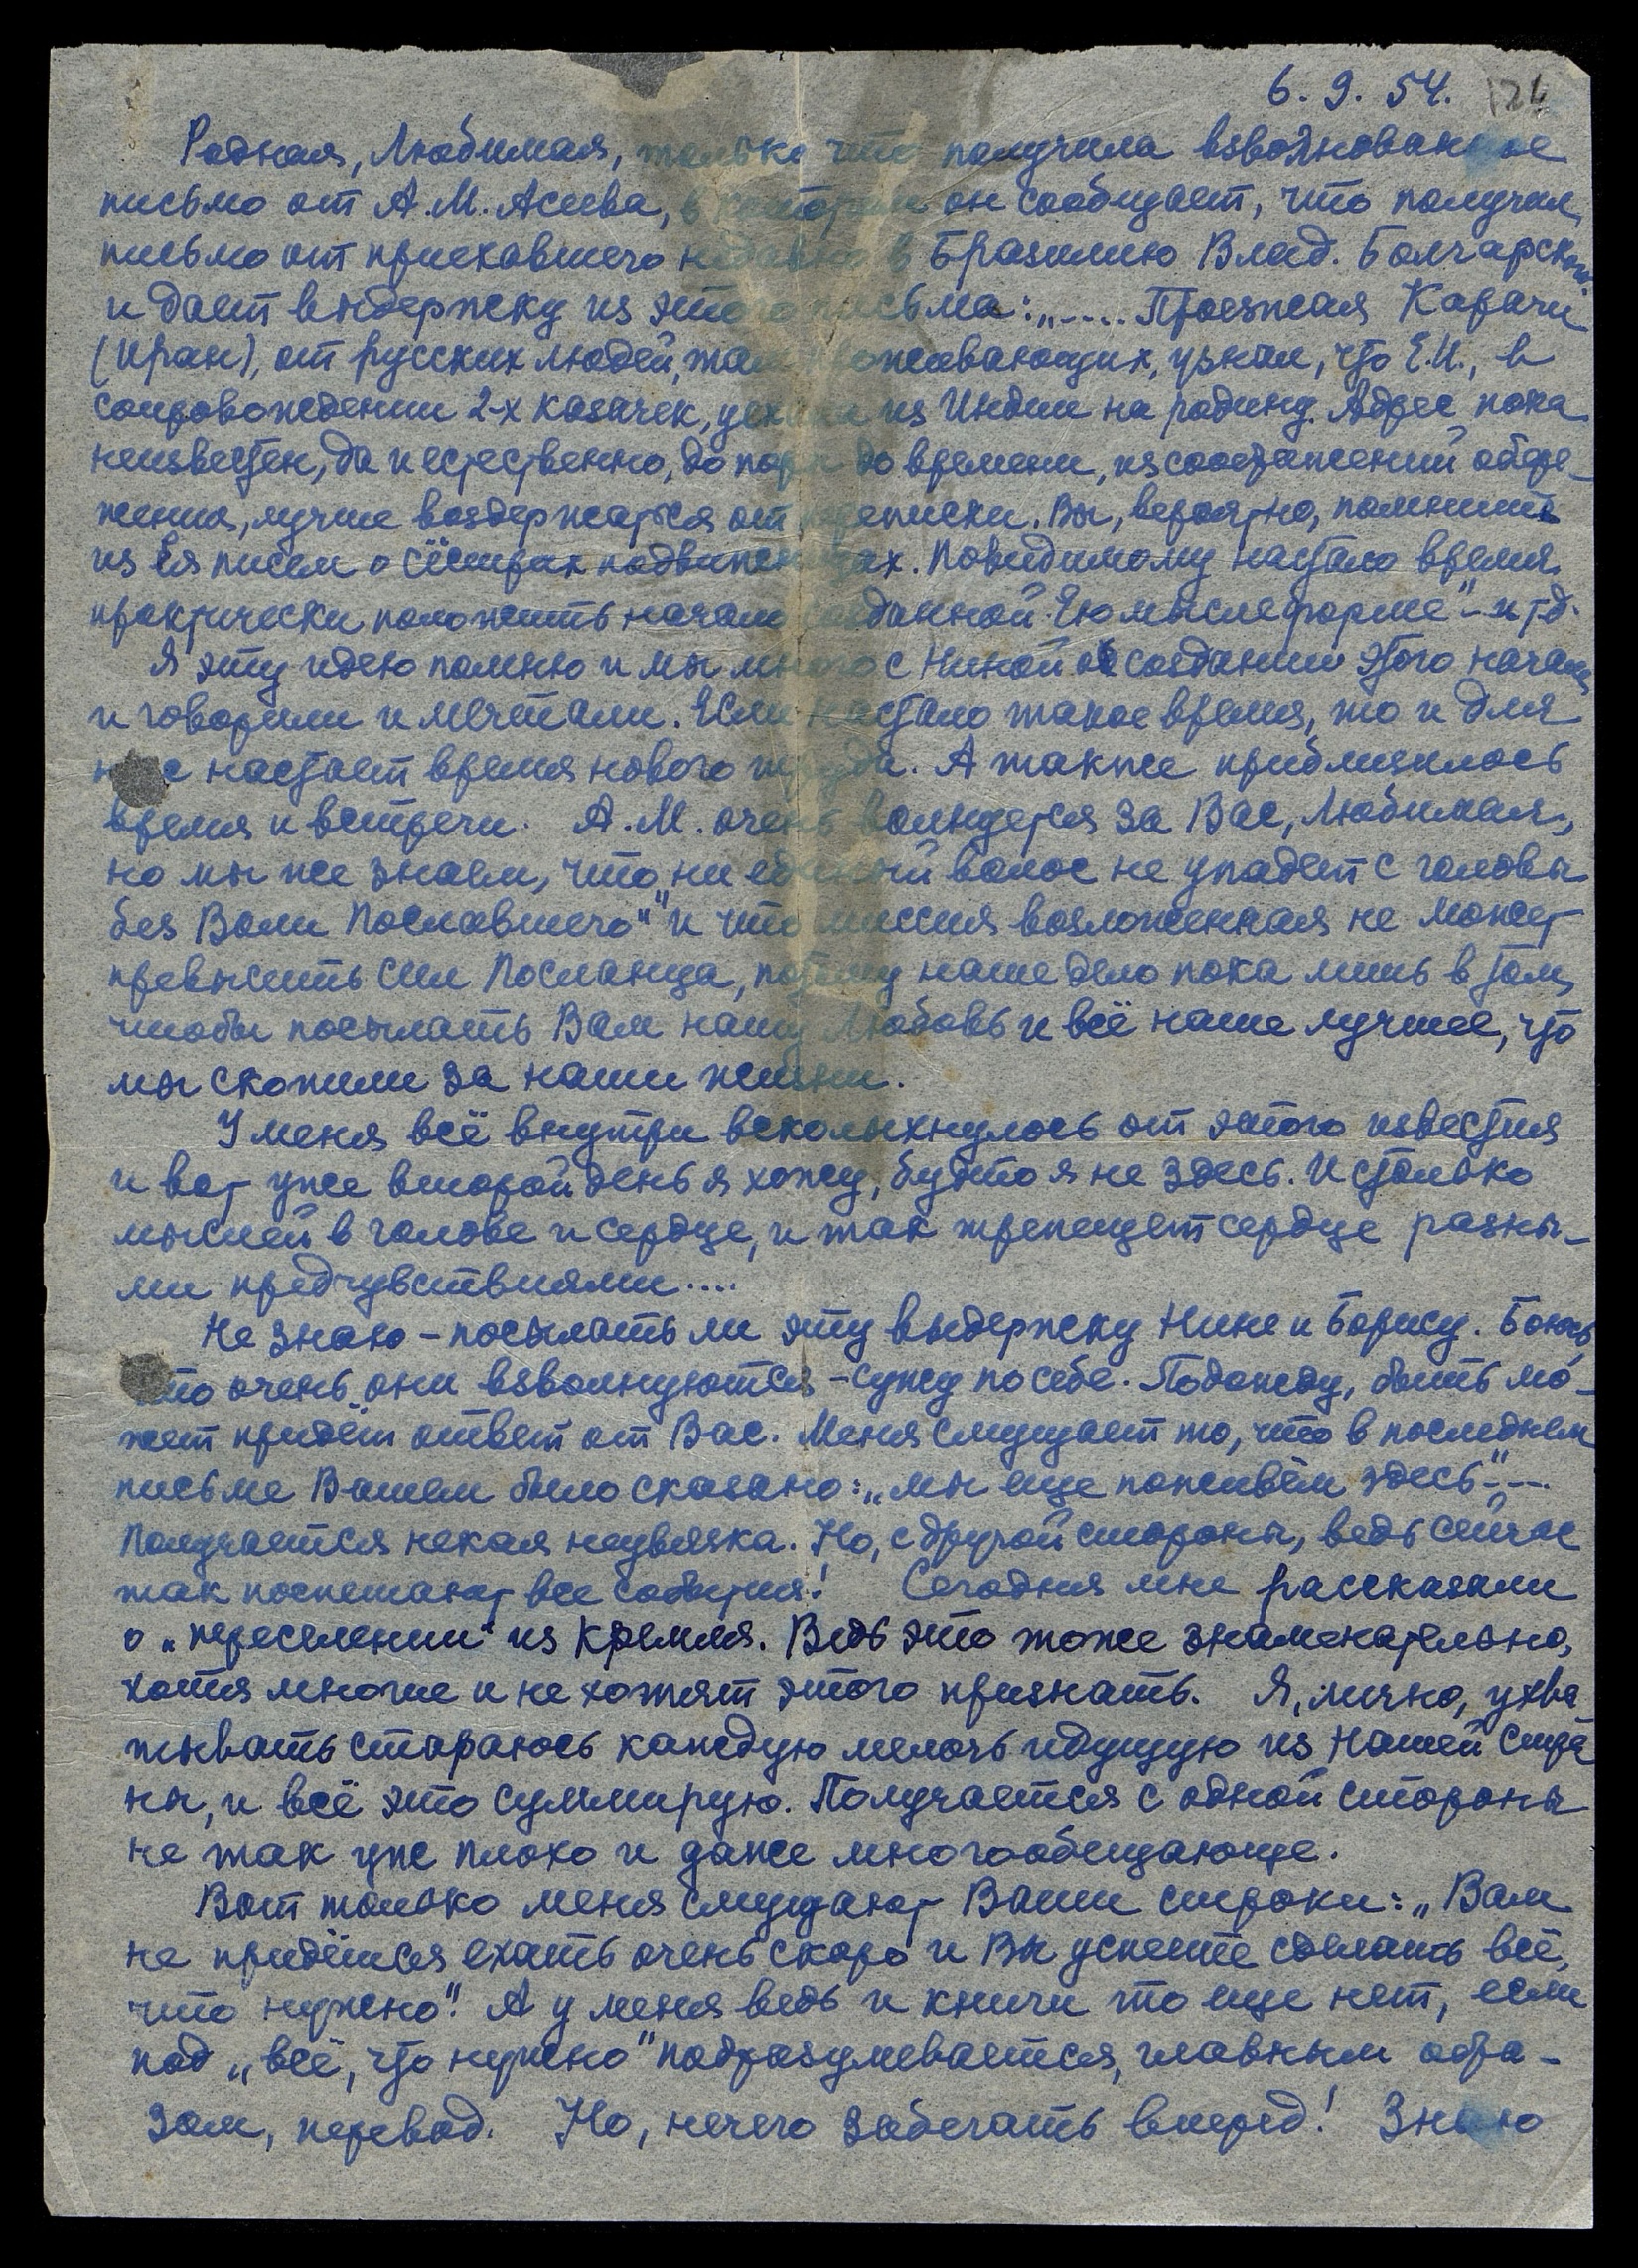 6. 9. 54. 126
Родная, Любимая, только что получила взволнованное
письмо от А.М. Асеева, в котором он сообщает, что получил
письмо от приехавшего недавно в Бразилию Влад. Болгарского
и дает выдержку из этого письма: „.... Проезжая Карачи
(Иран), от русских людей, там проживающих, узнал, что Е.И., в
сопровождении 2-х казачек, уехала из Индии на родину. Адрес пока
неизвестен, да и естественно, до поры до времени, из соображений обере-
жения, лучше воздержаться от переписки. Вы, вероятно, помните
из Ея писем о сёстрах подвижницах. Повидимому настало время
практически положить начало созданной Ею мыслеформе" – и т.д.
Я эту идею помню и мы много с Ниной о создании этого начала
и говорили и мечтали. Если настало такое время, то и для
нас настает время нового труда. А также приблизилось
время и встречи. А.М. очень волнуется за Вас, Любимая,
но мы же знаем, что „ни единый волос не упадет с головы
без Воли Пославшего" и что миссия возложенная не может
превысить сил Посланца, потому наше дело пока лишь в том,
чтобы посылать Вам нашу Любовь и всё наше лучшее, что
мы скопили за наши жизни.
У меня всё внутри всколыхнулось от этого известия
и вот уже второй день я хожу, будто я не здесь. И столько
мыслей в голове и сердце, и так трепещет сердце разны-
ми предчувствиями....
Не знаю – посылать ли эту выдержку Нине и Борису. Боюсь
что очень они взволнуются – сужу по себе. Подожду, быть мо-
жет придёт ответ от Вас. Меня смущает то, что в последнем
письме Вашем было сказано: „мы еще поживём здесь" –...
Получается некая неувязка. Но, с другой стороны, ведь сейчас
так поспешают все события! Сегодня мне рассказали
о „переселении" из Кремля. Ведь это тоже знаменательно,
хотя многие и не хотят этого признать. Я, лично, ухва-
тывать стараюсь каждую мелочь идущую из Нашей Стра
ны, и всё это суммирую. Получается с одной стороны
не так уж плохо и даже многообещающе.
Вот только меня смущают Ваши строки: „Вам
не придётся ехать очень скоро и Вы успеете сделать всё,
что нужно". А у меня ведь и книги то еще нет, если
под „всё, что нужно" подразумевается, главным обра-
зом, перевод. Но, нечего забегать вперед! Знаю